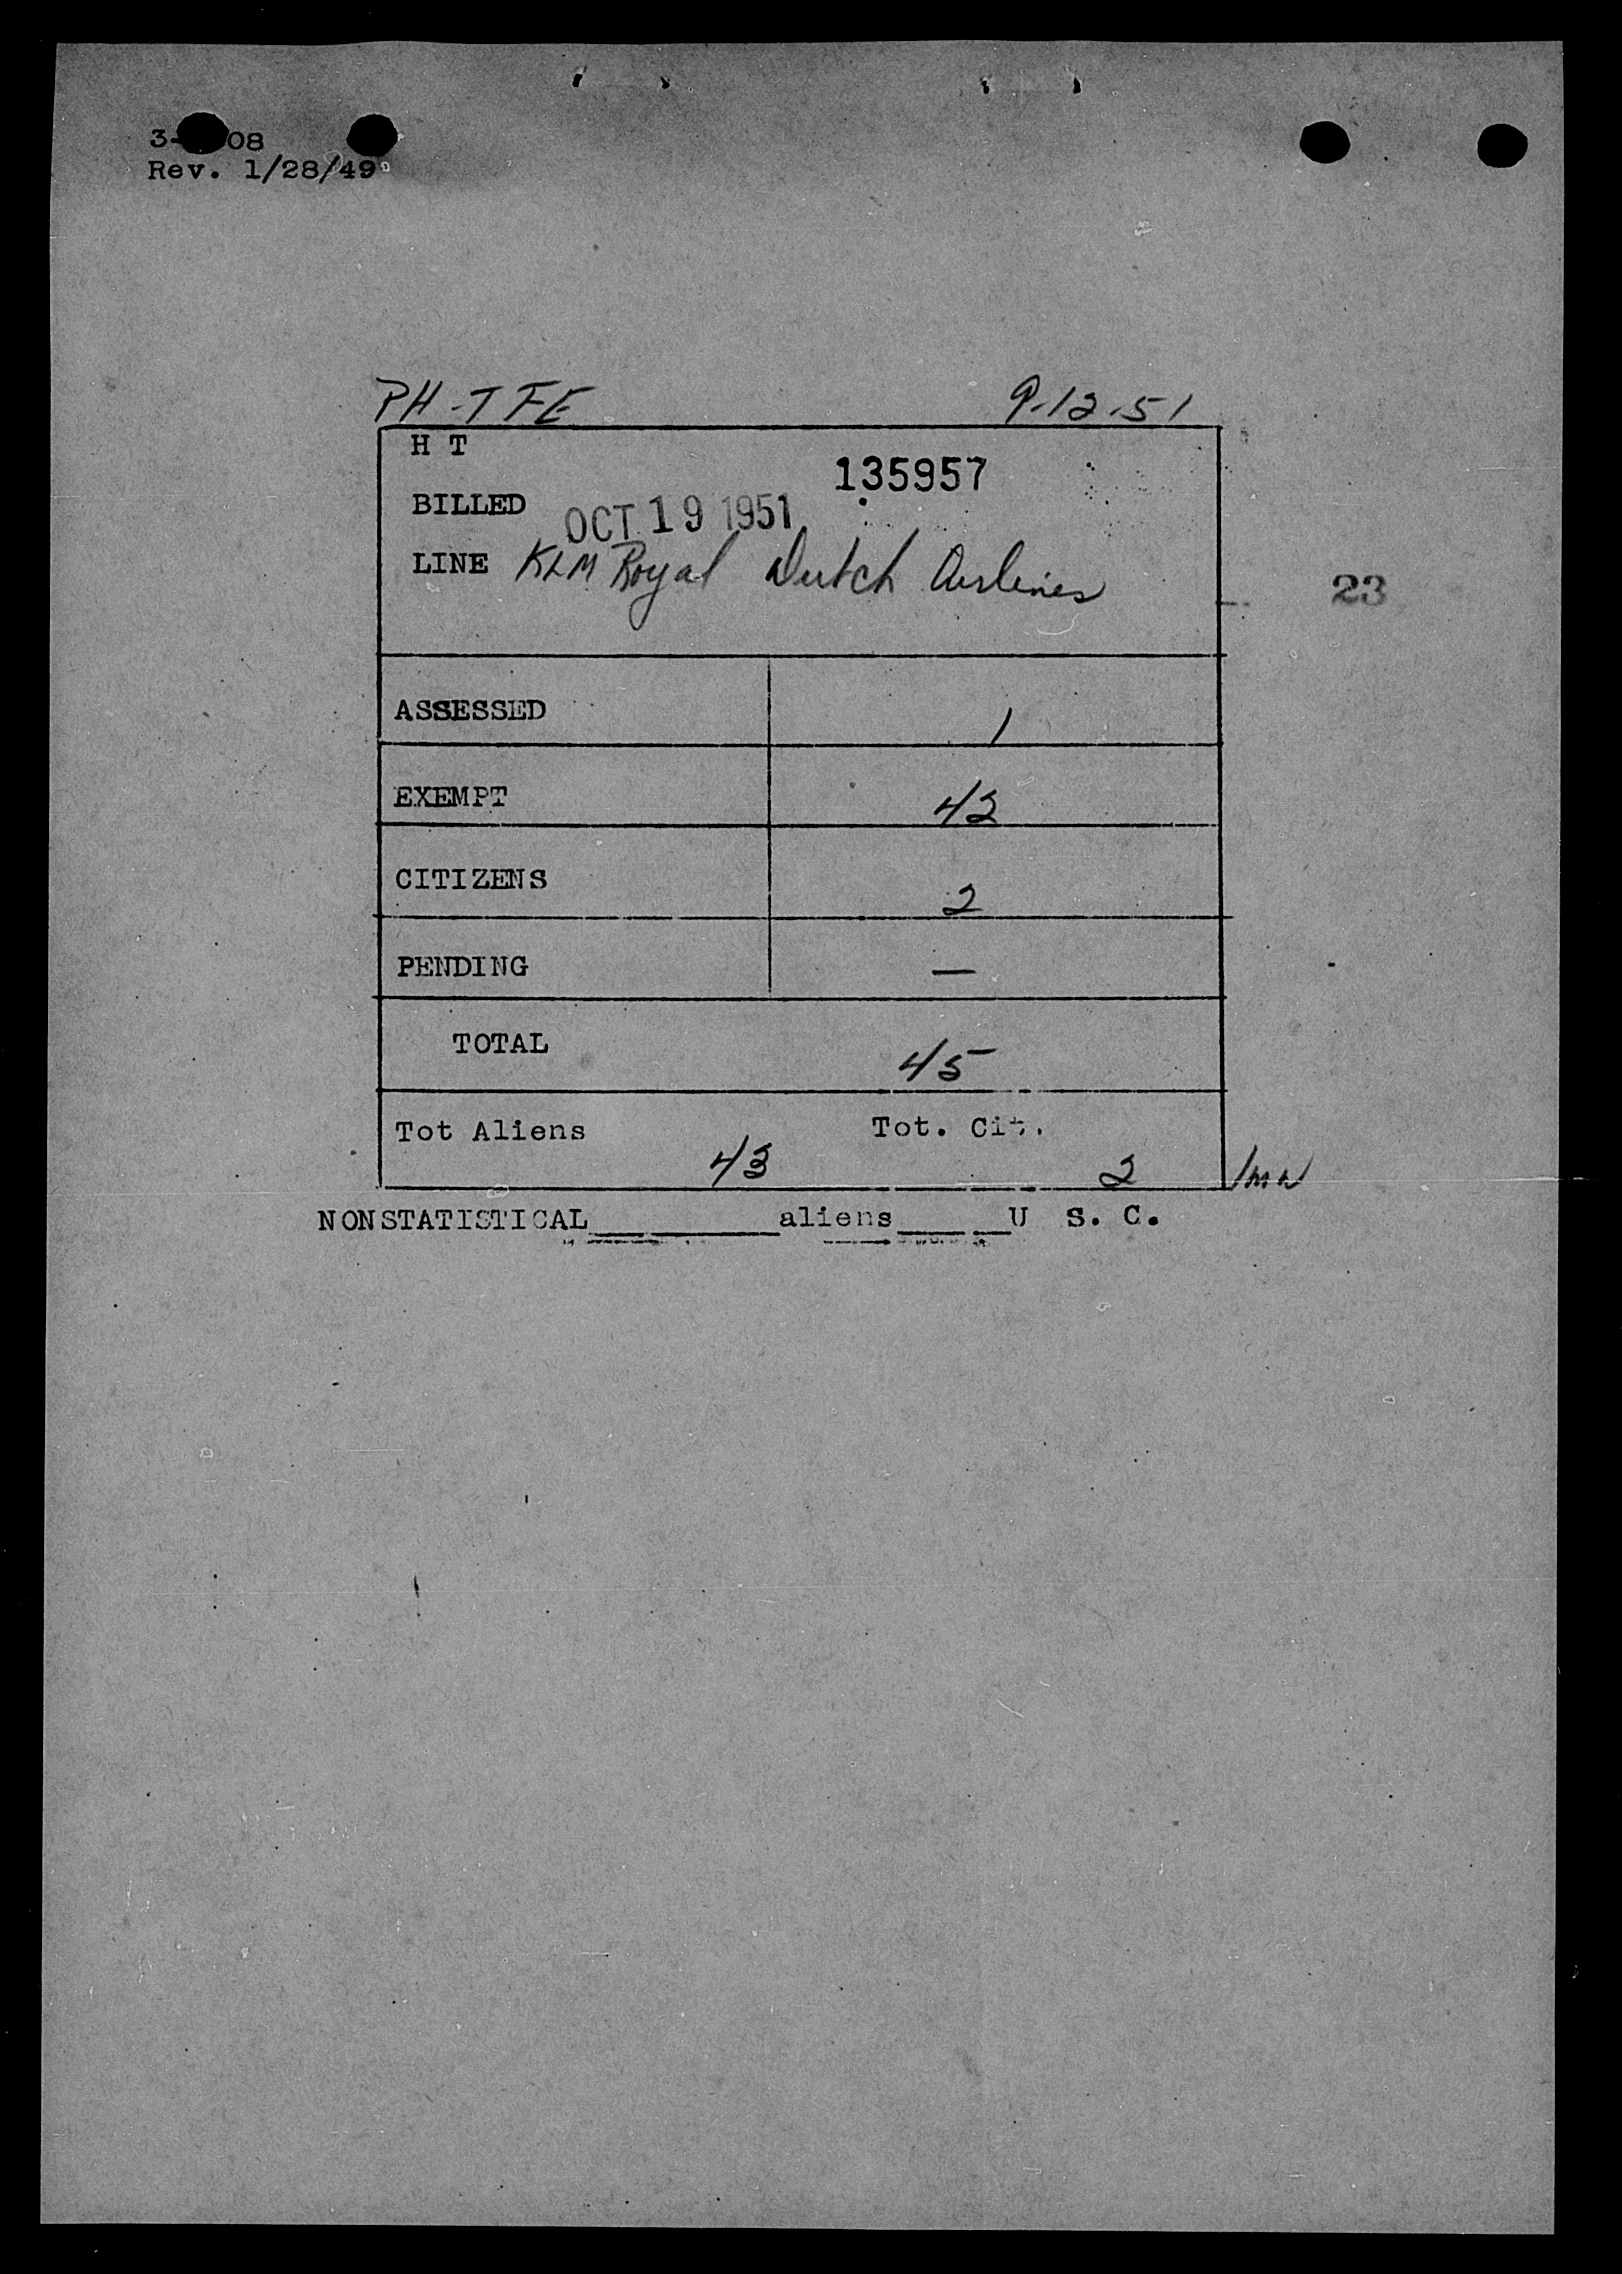 3-  08
Rev. 1/28/49
PH-TFE 9-12-51
H T
135957
BILLED OCT 19 1951
LINE KLM Royal Dutch Airlines
23
ASSESSED 1
EXEMPT 42
CITIZENS 2
PENDING —
TOTAL 45
Tot Aliens 43 Tot. Cit. 2
NONSTATISTICAL__________aliens______U S. C.